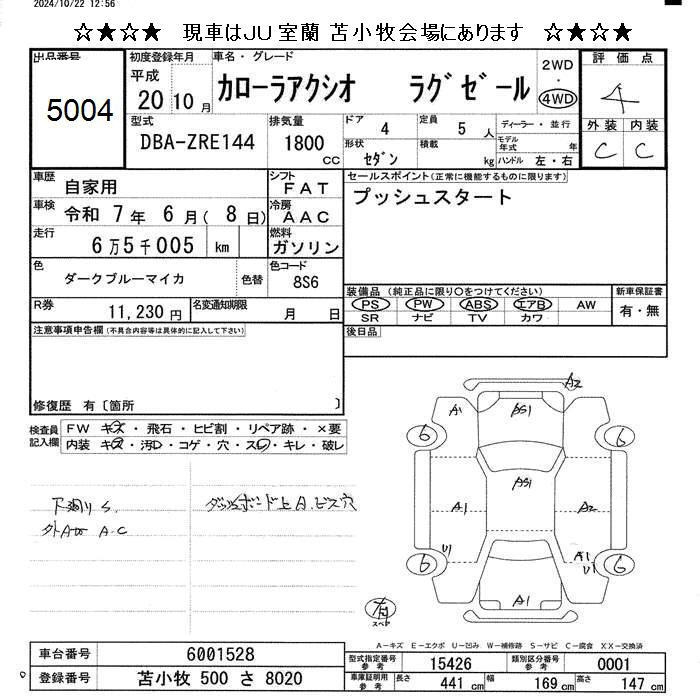 2024/10/22 12:56
☆★☆★ 現車はJU室蘭 苫小牧会場にあります ☆★☆★
出品番号
5004
初度登録年月
平成
20 10 月
車名・グレード
カローラアクシオ ラグゼール
2WD
・
4WD
評価点
4
外装 内装
C C
型式
DBA-ZRE144
排気量
1800
CC
ドア 4
定員 5 人
形状 セダン
積載 kg
ディーラー・並行
モデル年式 年
ハンドル 左・右
車歴 自家用
シフト FAT
車検 令和 7 年 6 月( 8 日)
冷房 AAC
走行 6万5千005 km
燃料 ガソリン
色 ダークブルーマイカ 色替
色コード 8S6
R券 11,230 円
名変通知期限 月 日
セールスポイント(正常に機能するものに限ります)
プッシュスタート
装備品 (純正品に限り○をつけてください)
PS PW ABS エアB AW
SR ナビ TV カワ
新車保証書
有・無
後日品
注意事項申告欄(不具合内容等は具体的に記入して下さい)
修復歴 有〔箇所 〕
検査員記入欄
FW キズ・飛石・ヒビ割・リペア跡・×要
内装 キズ・汚レ・コゲ・穴・スレ・キレ・破レ
下廻り S
A・C
A2
A1
BS1
6 6
AS1
A1 A2
U1 A1
U1
6 6
A1
有
スペヤ
A－キズ E－エクボ U－凹み W－補修跡 S－サビ C－腐食 XX－交換済
車台番号 6001528
登録番号 苫小牧 500 さ 8020
型式指定番号 参考 15426
類別区分番号 参考 0001
車庫証明用 参考 長さ 441 cm 幅 169 cm 高さ 147 cm